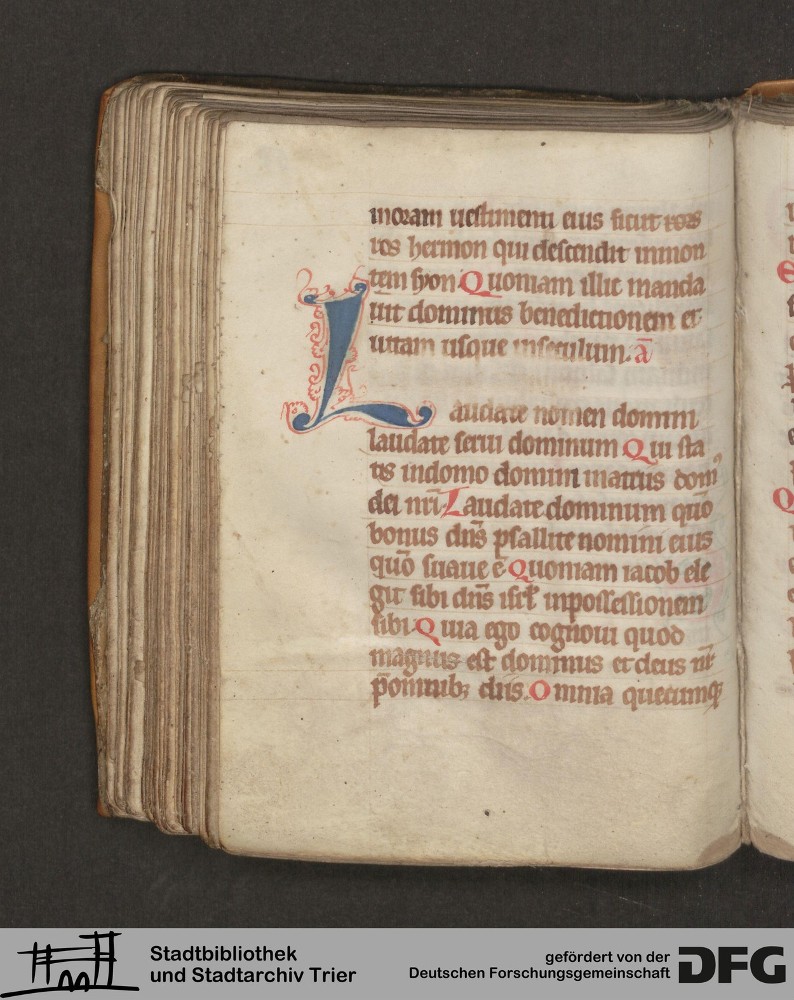 inoram uestimenti eius sicut roos
ros hermon qui descendit inmon
tem syon Quoniam illic manda
uit dominus benedictionem et
uitam usque inseculum. a̅
Laudate nomen domini
laudate serui dominum Qui sta
tis indomo domini inatriis dom᷒
dei nr̅i Laudate dominum quo̅
bonus dn̅s psallite nomini eius
quo̅ suaue e̅ Quoniam iacob ele
git sibi dn̅s isrl̅ inpossessionem
sibi Quia ego cognoui quod
magnus est dominus et deus nr̅
p̅omnibꝫ diis. Omnia quecumqꝫ
Stadtbibliothek
und Stadtarchiv Trier
gefördert von der
Deutschen Forschungsgemeinschaft
DFG